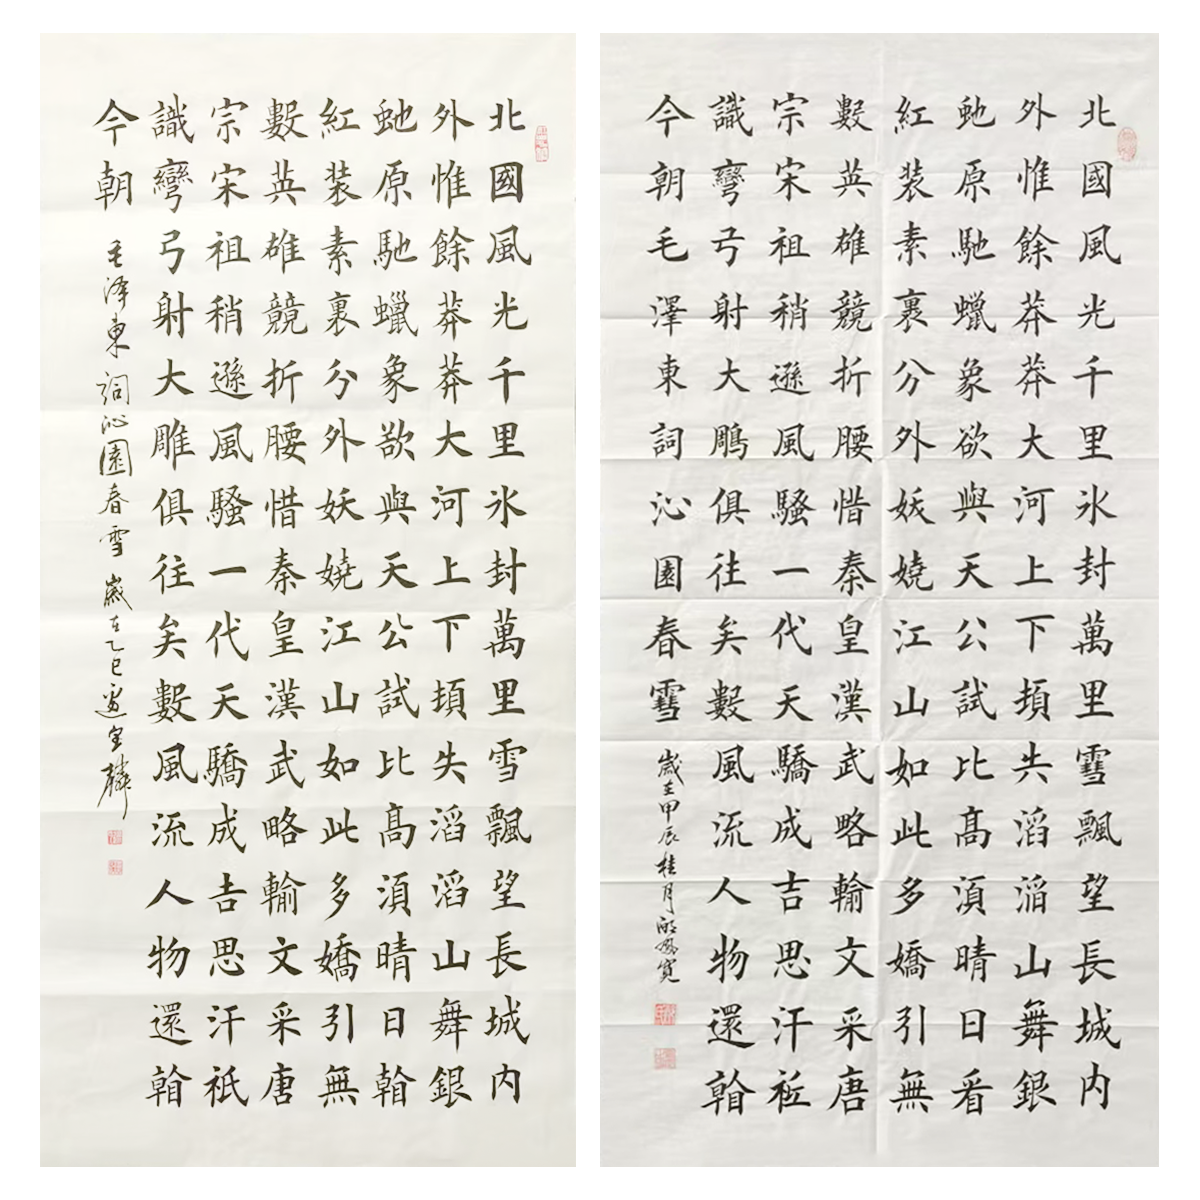 北國風光千里氷封萬里雪飄望長城内
外惟餘莽莽大河上下頃失滔滔山舞銀
虵原馳蠟象欲與天公試比高湏晴日看
紅装素裹分外妖嬈江山如此多嬌引無
數英雄競折腰惜秦皇漢武略輸文采唐
宗宋祖稍遜風騷一代天驕成吉思汗祇
識彎弓射大雕俱往矣數風流人物還看
今朝
毛澤東詞沁園春雪 歲在乙巳
北國風光千里氷封萬里雪飄望長城内
外惟餘莽莽大河上下頃失滔滔山舞銀
虵原馳蠟象欲與天公試比高湏晴日看
紅装素裹分外妖嬈江山如此多嬌引無
數英雄競折腰惜秦皇漢武略輸文采唐
宗宋祖稍遜風騷一代天驕成吉思汗祇
識彎弓射大鵰俱往矣數風流人物還看
今朝毛澤東詞沁園春雪 歲在甲辰桂月